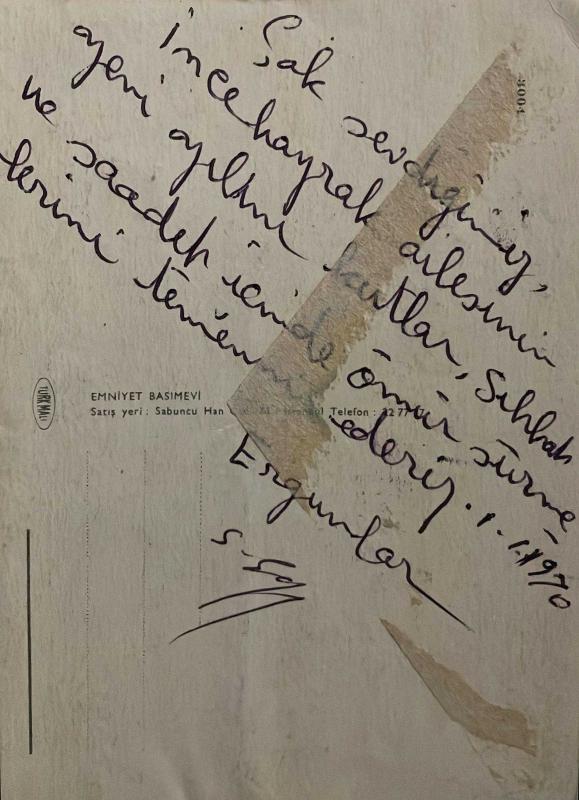 Çok sevdiğimiz,
İncebayrak ailesinin
yeni yılını kutlar, Sıhhat
ve saadet içinde ömür sürme
lerini temenni ederiz. 1.1.1970
Ergunlar
3004
TÜRK MALI
EMNİYET BASIMEVİ
Satış yeri : Sabuncu Han İstanbul Telefon : 22 77